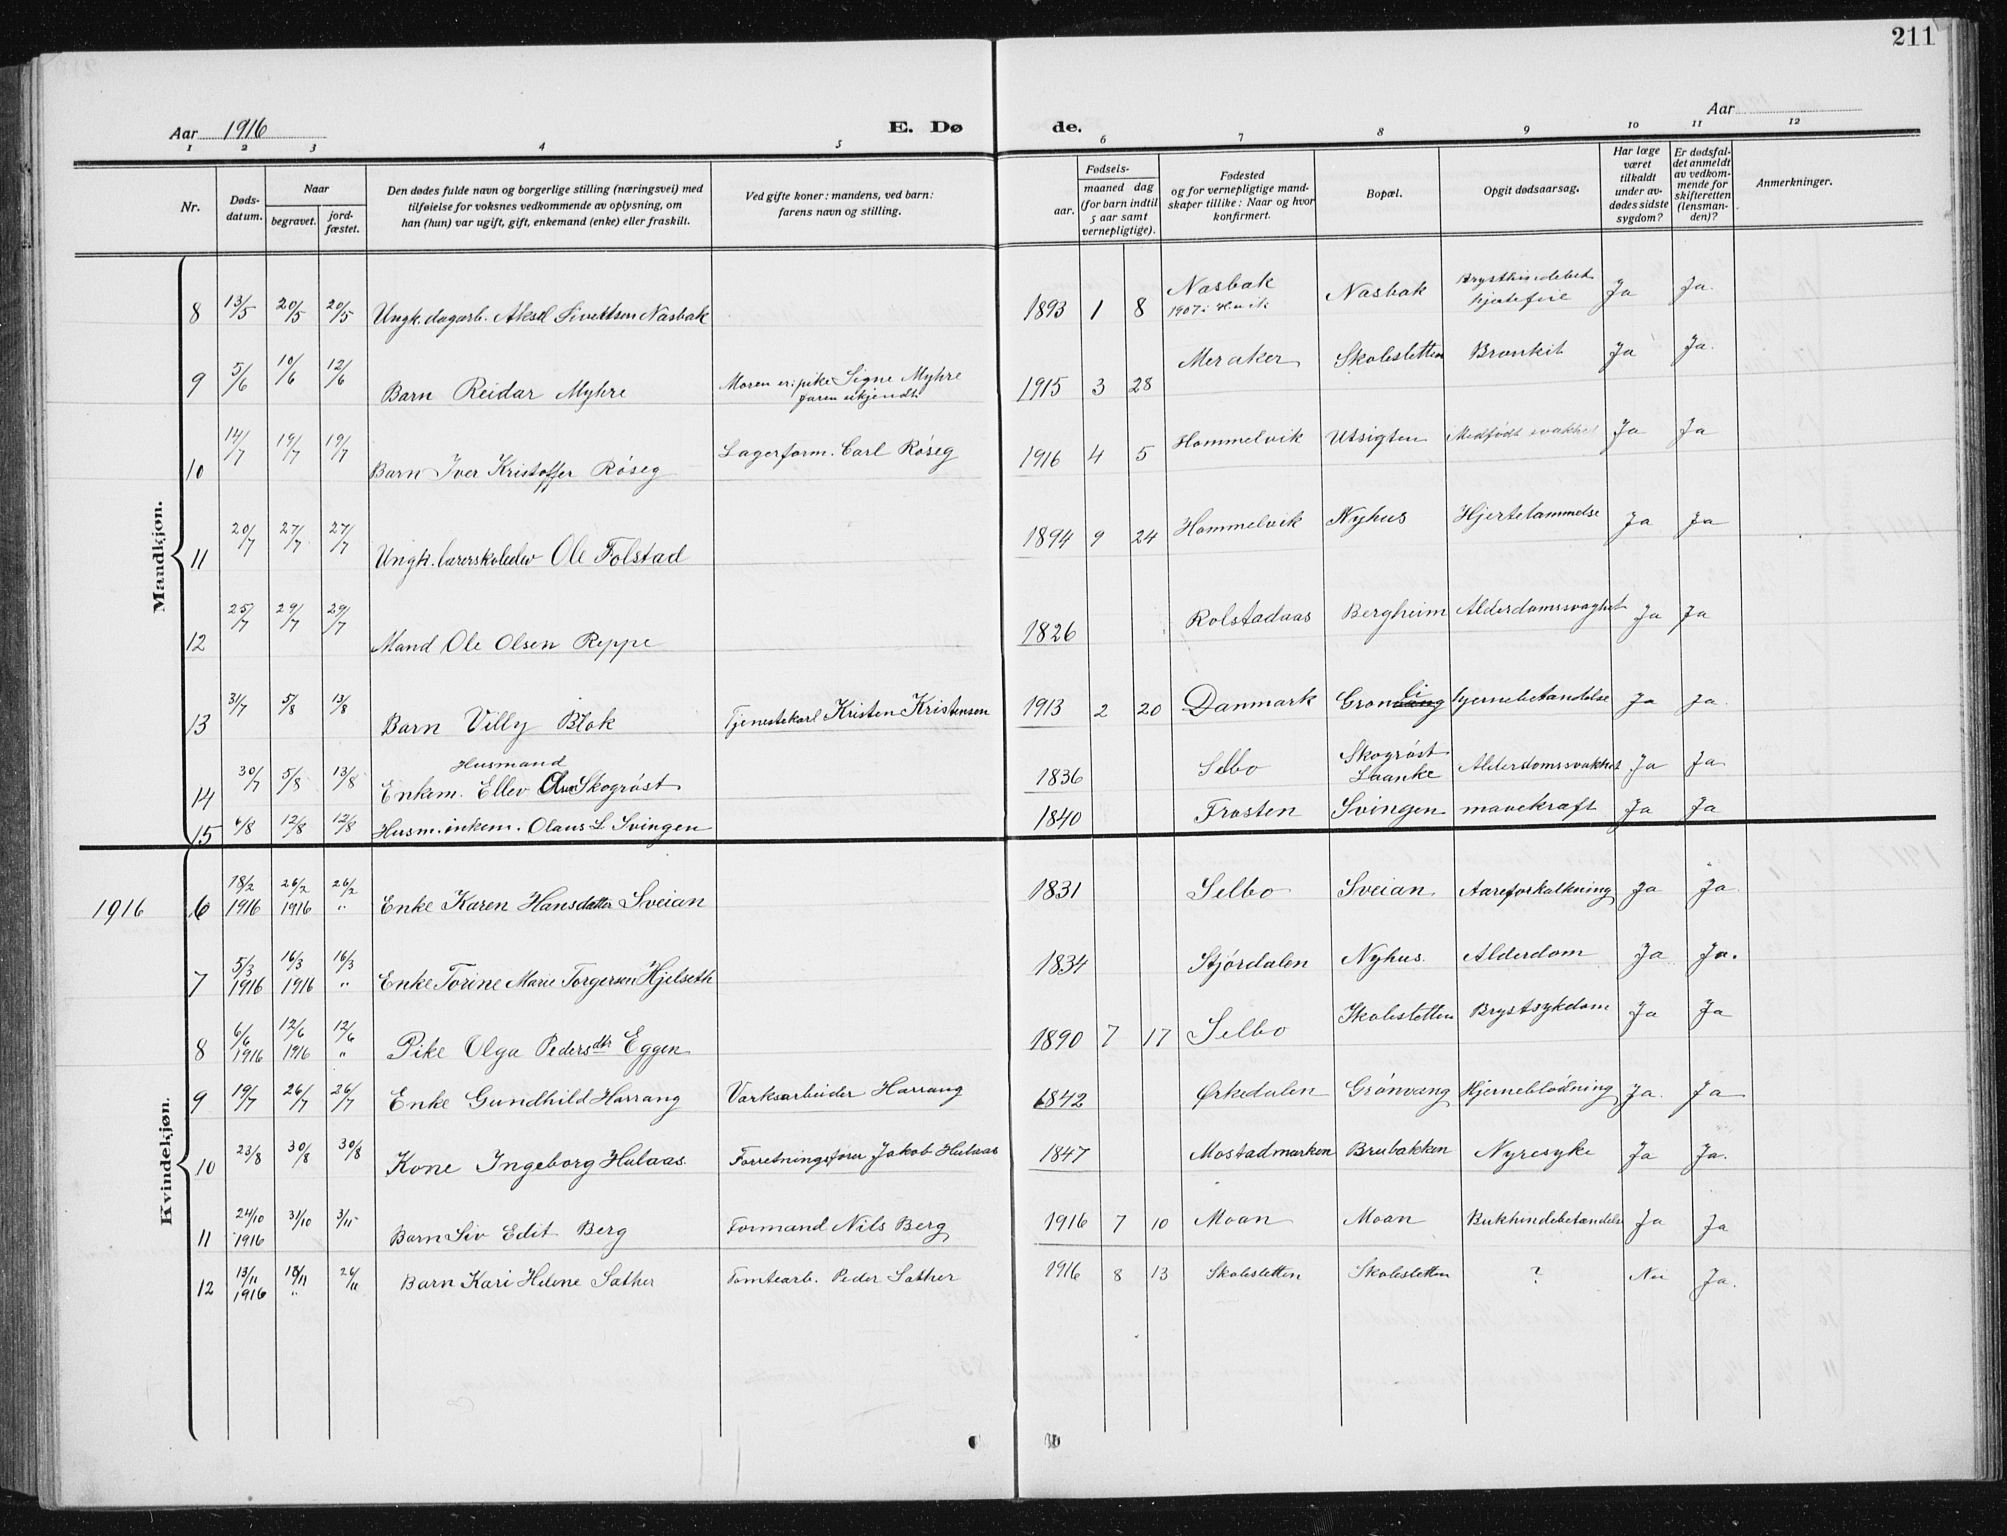 211
Aar 1916
E. Dø de.
Aar
1 2 3 4 5 6 7 8 9 10 11 12
Nr.
Døds-
datum.
Naar
begravet.
jord-
fæstet.
Den dødes fulde navn og borgerlige stilling (næringsvei) med
tilføielse for voksnes vedkommende av oplysning, om
han (hun) var ugift, gift, enkemand (enke) eller fraskilt.
Ved gifte koner: mandens, ved barn:
farens navn og stilling.
Fødsels-
aar.
maaned dag
(for barn indtil
5 aar samt
vernepligtige).
Fødested
og for vernepligtige mand-
skaper tillike: Naar og hvor
konfirmert.
Bopæl.
Opgit dødsaarsag.
Har læge
været
tilkaldt
under av-
dødes sidste
sygdom?
Er dødsfal-
det anmeldt
av vedkom-
mende for
skifteretten
(lensman-
den)?
Anmerkninger.
Mandkjøn.
8 13/5 20/5 20/5 Ungk. dagarb. Aksel Sivertsen Nasbak 1893 1 8 Nasbak 1907 i Nasbak hjertefeil Ja Ja.
9 5/6 10/6 12/6 Barn Reidar Myhre Moren er: pike Signe Myhre
faren ukjendt. 1915 3 28 Meraker Skolesletten Bronkit Ja Ja.
10 14/7 19/7 19/7 Barn Iver Kristoffer Røseg Lagerform. Carl Røseg 1916 4 5 Hommelvik Utsigten Medfødt svakhet Ja Ja
11 20/7 27/7 27/7 Ungk. lærerskoleelev Ole Folstad 1894 9 24 Hommelvik Nyhus Hjertelammelse Ja Ja
12 25/7 29/7 29/7 Mand Ole Olsen Reppe 1826 Rolstadaas Bergheim Alderdomssvaghet Ja Ja
13 31/7 5/8 13/8 Barn Villy Blok Tjenestekarl Kristen Kristensen 1913 2 20 Danmark Grønli hjernebetændelse Ja Ja.
14 30/7 5/8 13/8 Husmand
Enkem. Ellev Olsen Skogrøst 1836 Selbo Skogrøst
Laanke Alderdomssvakhet Ja Ja
15 6/8 12/8 12/8 Husm. enkem. Olaus L Svingen 1840 Frosten Svingen mavekræft Ja Ja
Kvindekjøn.
1916 6 18/2 1916 26/2 1916 26/2 " Enke Karen Hansdatter Sveian 1831 Selbo Sveian Aareforkalkning Ja Ja
7 5/3 1916 16/3 1916 16/3 " Enke Torine Marie Torgersen Hjelseth 1834 Stjørdalen Nyhus. Alderdom Ja Ja.
8 6/6 1916 12/6 1916 12/6 " Pike Olga Pedersdtr Eggen 1890 7 17 Selbo Skolesletten Brystsykdom Ja Ja
9 19/7 26/7 26/7 Enke Gundhild Harrang Verksarbeider Harrang 1842 Ørkedalen Grønvang Hjerneblødning Ja. Ja
10 23/8 30/8 30/8 Kone Ingeborg Hulaas. Forretningsfører Jakob Hulaas 1847 Mostadmarken Brubakken Nyresyke Ja Ja.
11 24/10 1916 31/10 3/11 Barn Siv Edit Berg Formand Nils Berg 1916 7 10 Moan Moan Bukhindebetændelse Ja Ja
12 13/11 1916 18/11 " 26/11 Barn Kari Helene Sæther Tomtearb. Peder Sæther 1916 8 13 Skolesletten Skolesletten ? Nei Ja.